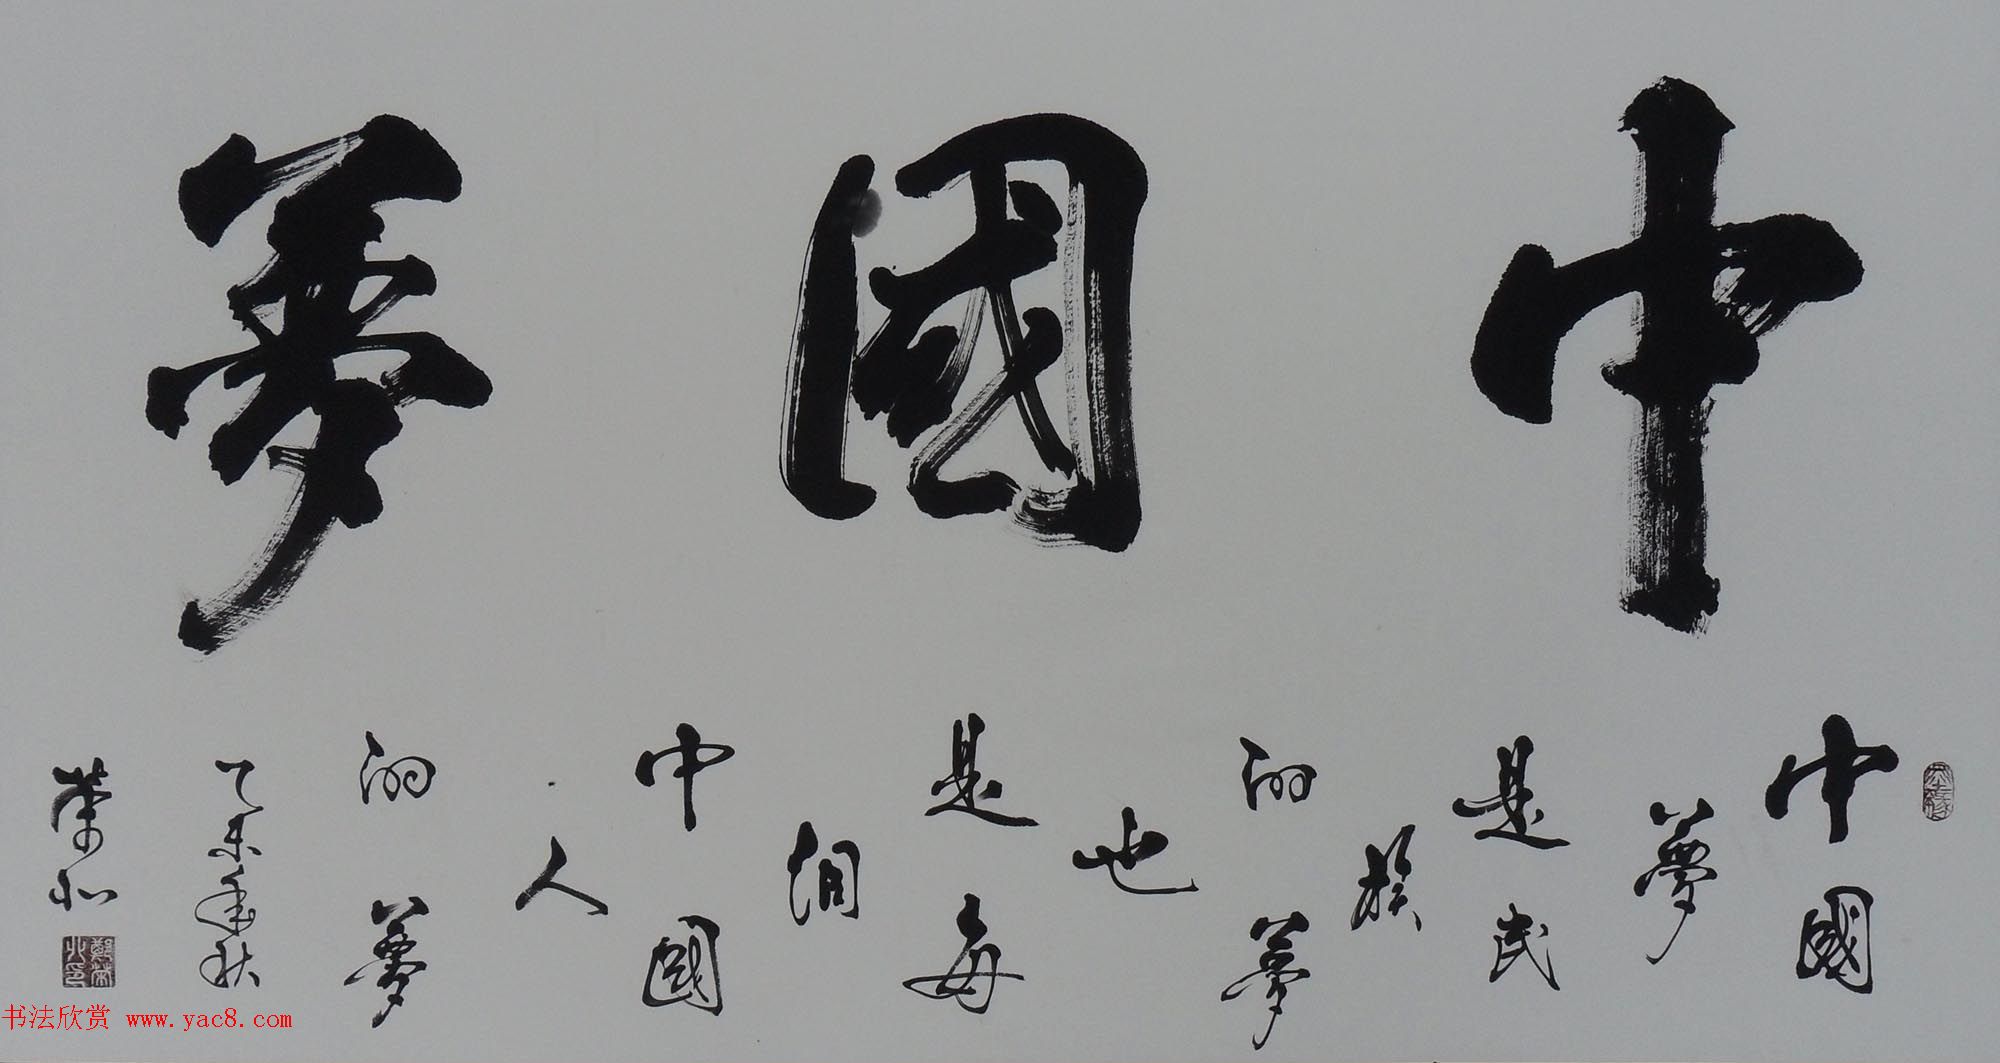 中國夢
中國
夢
是民
族
的夢
也
是每
個
中國
人
的夢
乙未年秋
书法欣赏 www.yac8.com